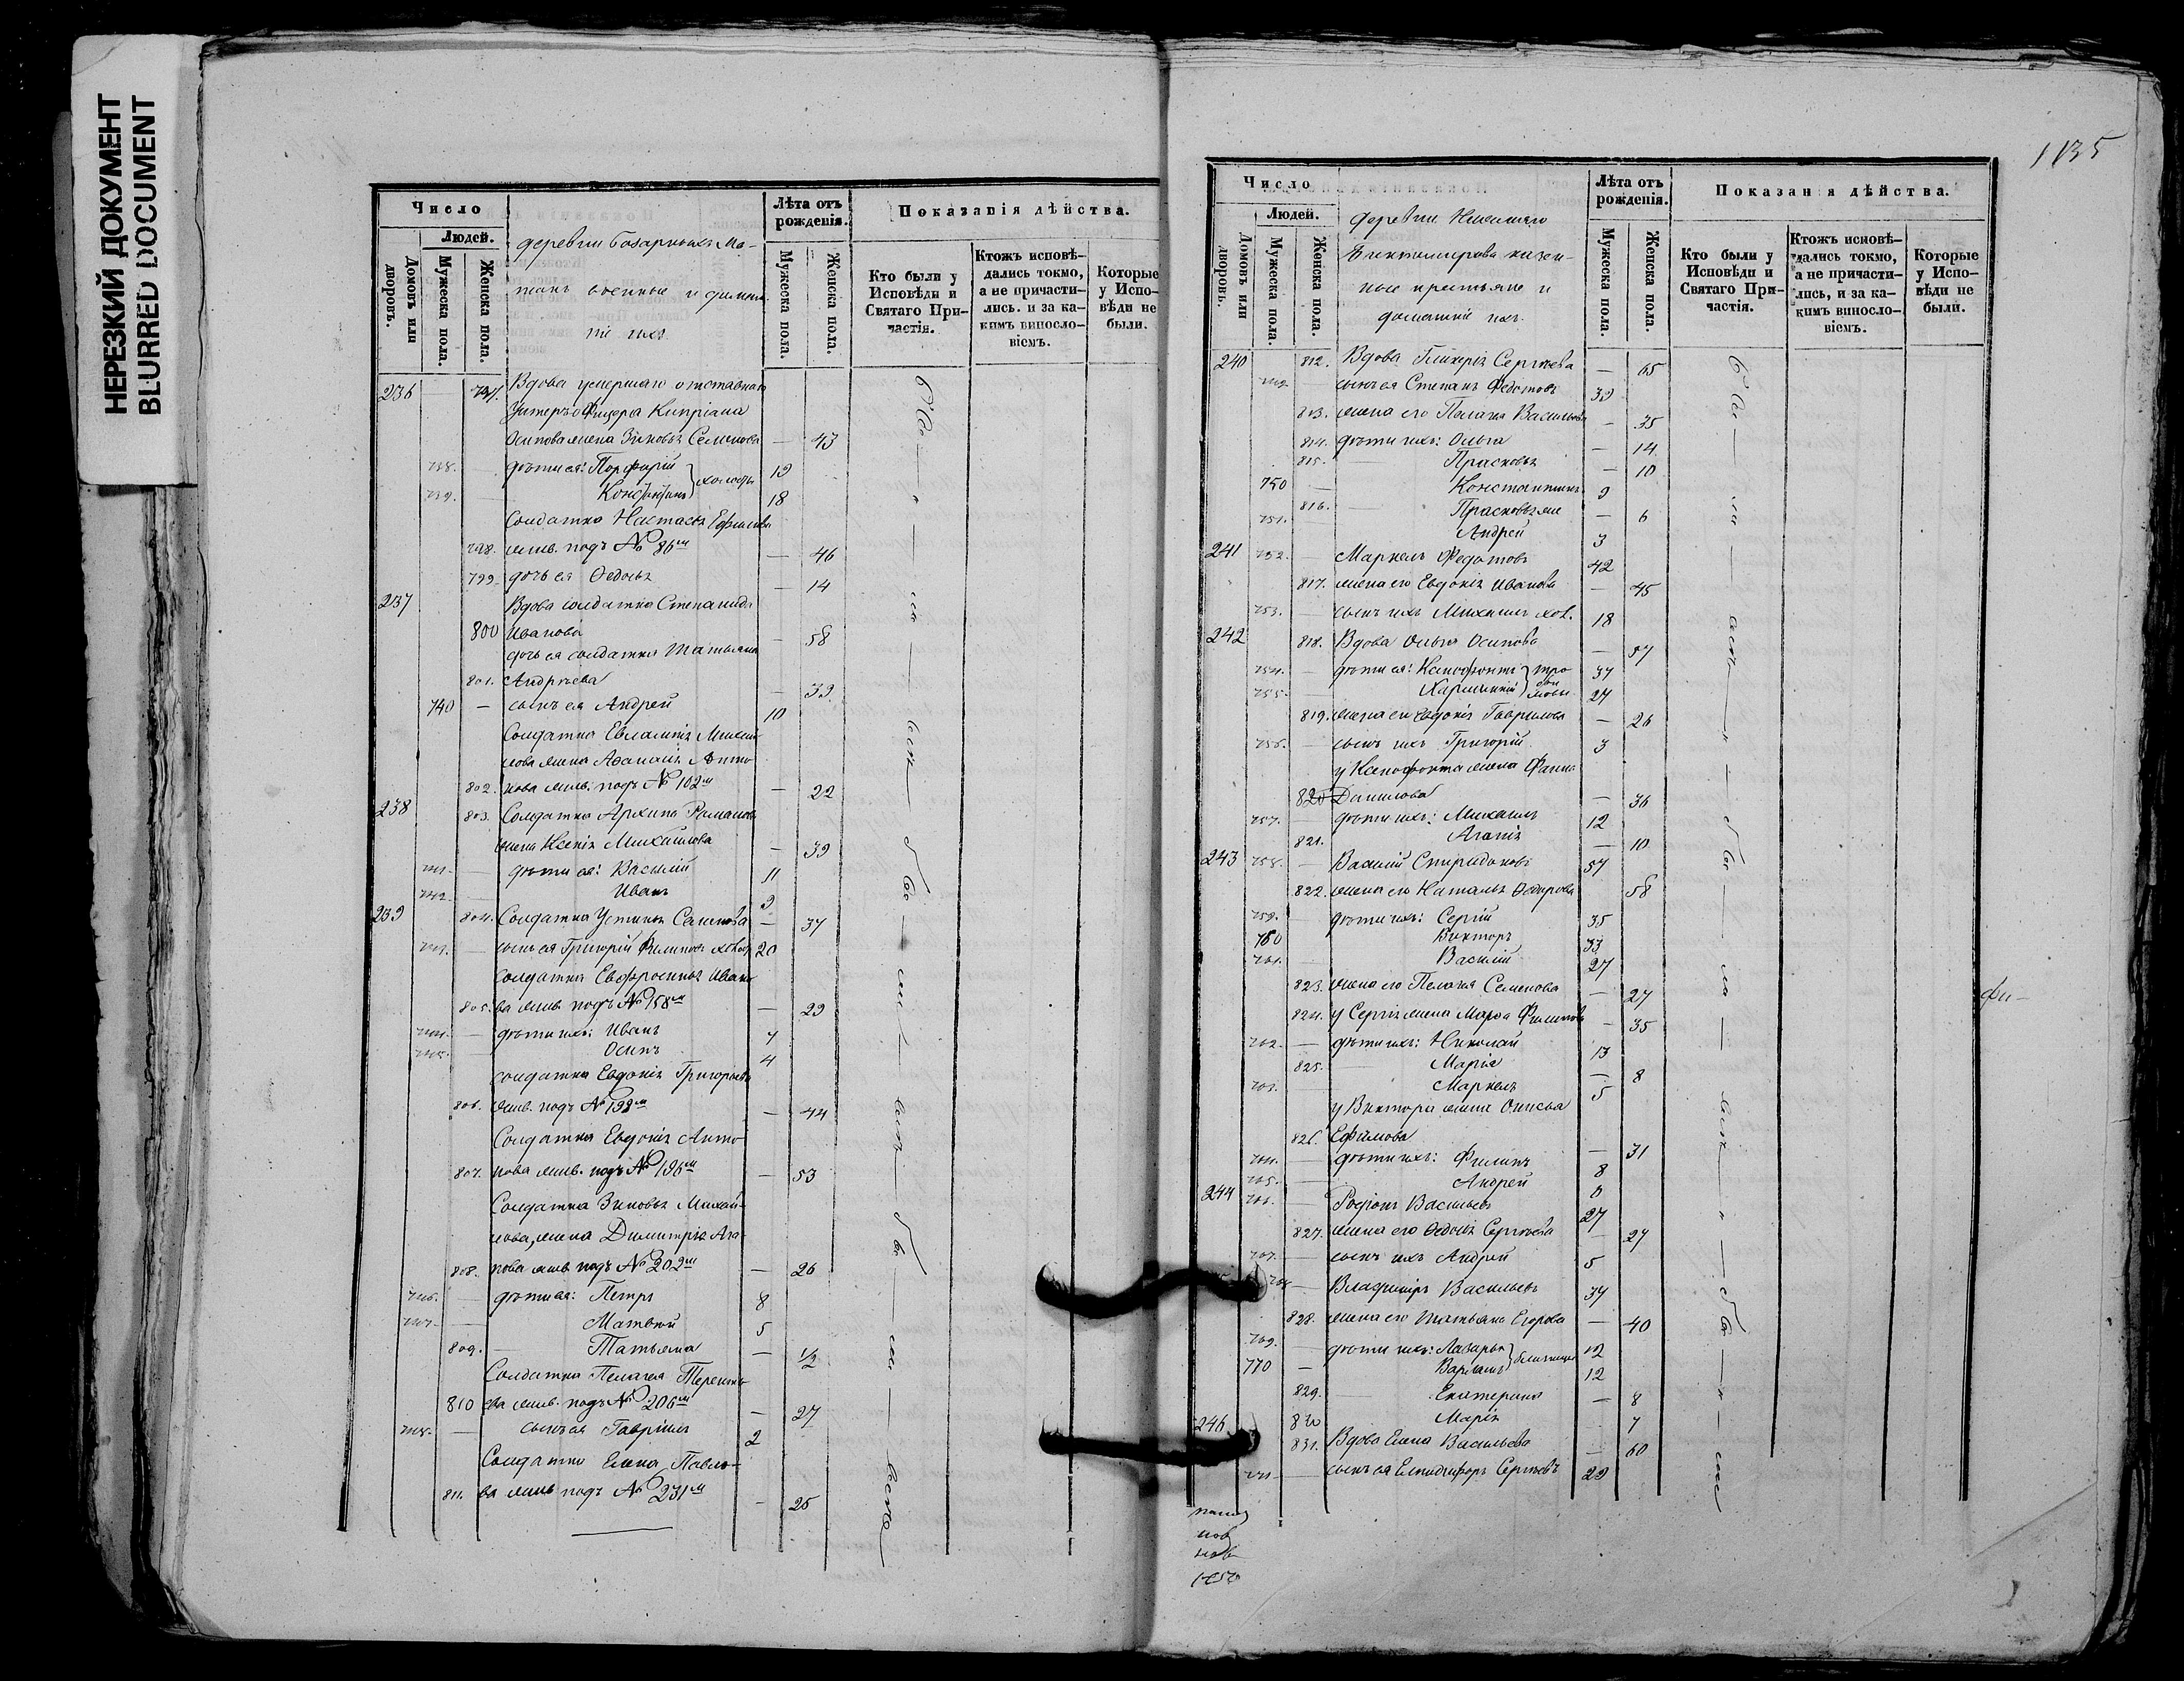 НЕРЕЗКИЙ ДОКУМЕНТ
BLURRED DOCUMENT
Число
Людей.
Домовъ или дворовъ.
Мужеска пола.
Женска пола.
деревни Базарныхъ Ма-
такъ военные и домаш-
ніе ихъ
Лѣта отъ рожденія.
Мужеска пола.
Женска пола.
Показанія дѣйства.
Кто были у Исповѣди и Святаго При-частія.
Ктожъ исповѣ-дались токмо, а не причасти-лись. и за ка-кимъ винослo-віемъ.
Которые у Испо-вѣди не были.
236 — 797. Вдова умершаго отставнаго
Унтеръ Офицера Кипріана
Осипова жена Зиновья Семенова — 43
738. — дѣти ея: Порфирій 19
739. — Константинъ холосты 18
Солдатка Настасья Ефимова
798. жив. подъ № 86м — 46
799. дочь ея Ѳедосья — 14
237 Вдова солдатка Степанида
800 Иванова — 58
дочь ея солдатка Татьяна
801. Андреева — 39
740 — сынъ ея Андрей 10
Солдатка Евлампія Михай
лова жена Аѳанасія Анто
802. нова жив. подъ № 102м — 22
238 803. Солдатка Архипа Романова
жена Ксенія Михайлова — 39
741. — дѣти ея: Василій 11
742. — Иванъ 9
239 804. Солдатка Устинья Саксонова — 37
743. — сынъ ея Григорій Филиповъ холост 20
солдатка Евфросинья Ивано
805. ва жив. подъ № 158м — 29
744. — дѣти ихъ: Иванъ 7
745. — Осипъ 4
солдатка Евдокія Григорьева
806. жив. подъ № 193м — 44
Солдатка Евдокія Анто
807. нова жив. подъ № 196м — 53
Солдатка Зиновья Михай-
лова, жена Димитрія Ага
808. пова жив подъ № 202м — 26
746. — дѣти ея: Петръ 8
747. — Матвѣй 5
809. — Татьяна — 1/2
Солдатка Пелагея Терентье
810 ва жив. подъ № 206м — 27
748. — сынъ ея Гавріилъ 2
Солдатка Елена Павло-
811. ва жив подъ № 231м — 25
1135
Число
Людей.
Домовъ или дворовъ.
Мужеска пола.
Женска пола.
деревни Нижняго
Биктимирова казен-
ные крестьяне и
домашніе ихъ.
Лѣта отъ рожденія.
Мужеска пола.
Женска пола.
Показанія дѣйства.
Кто были у Исповѣди и Святаго При-частія.
Ктожъ исповѣ-дались токмо, а не причасти-лись, и за ка-кимъ винослo-віемъ.
Которые у Испо-вѣди не были.
240 812. Вдова Гликерія Сергѣева — 65
749. — сынъ ея Степанъ Ѳедотовъ 39
813. жена его Пелагея Васильева — 35
814. дѣти ихъ: Ольга — 14
815. Прасковья — 10
750 — Константинъ 9
816. — Прасковья же — 6
751. Андрей 3
241 752. — Маркелъ Ѳедотовъ 42
817. жена его Евдокія Иванова — 45
753. — сынъ ихъ Михаилъ хол. 18
242 818. Вдова Ольга Осипова — 57
754. — дѣти ея: Ксенофонтъ 37
755. — Харлампій 27
819. жена его Евдокія Гаврилова — 26
756. — сынъ ихъ Григорій 3
у Ксенофонта жена Фаина
820 Данилова — 36
757. — дѣти ихъ: Михаилъ 12
821. Агапія — 10
243 758. — Василій Спиридоновъ 57
822. жена его Наталья Ѳедорова 58
759. — дѣти ихъ: Сергій 35
760 Викторъ 33
761. — Василій 27
823. жена его Пелагея Семенова — 27
824. у Сергія жена Марѳа Филипова — 35
762. — дѣти ихъ: Николай 13
825. — Марія — 8
763. — Маркелъ 5
у Виктора жена Онисья
826. Ефимова — 31
764. — дѣти ихъ: Филипъ 8
765. — Андрей 6
244 766. — Родіонъ Васильевъ 27
827. жена его Ѳедосья Сергѣева — 27
767. — сынъ ихъ Андрей 5
768. — Владиміръ Васильевъ 37
828. жена его Татьяна Егорова — 40
769. — дѣти ихъ: Лазарь 12
770 — Варлаамъ близнецы 12
829. Екатерина — 8
830 Марія 7
246 831. Вдова Елена Васильева — 60
771 — сынъ ея Елпидифоръ Сергѣевъ 29